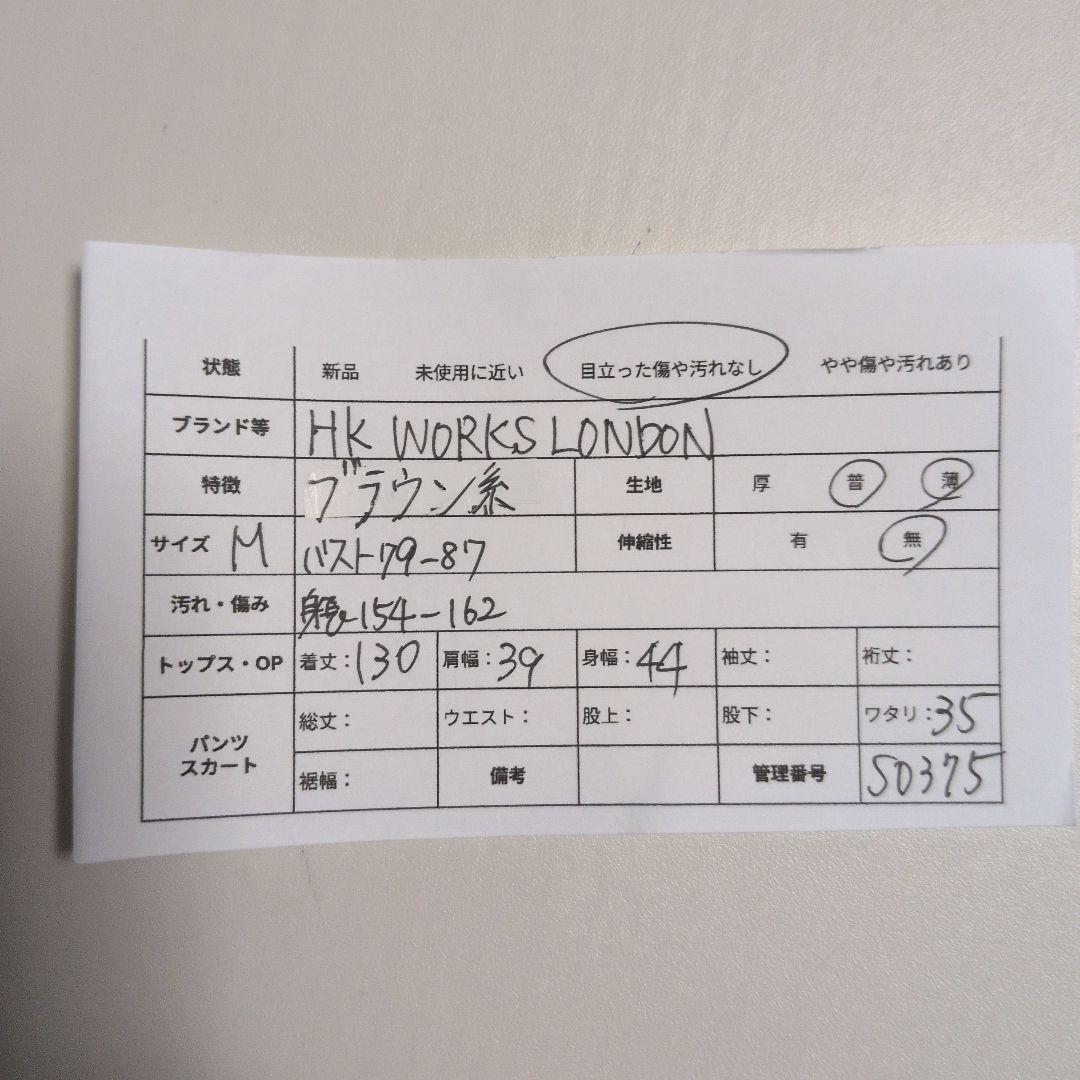 状態 新品 未使用に近い 目立った傷や汚れなし やや傷や汚れあり
ブランド等 HK WORKS LONDON
特徴 ブラウン系 生地 厚 普 薄
サイズ M バスト79-87 伸縮性 有 無
汚れ・傷み 身長154-162
トップス・OP 着丈:130 肩幅:39 身幅:44 袖丈: 裄丈:
パンツ スカート 総丈: ウエスト: 股上: 股下: ワタリ:35
裾幅: 備考 管理番号 S0375